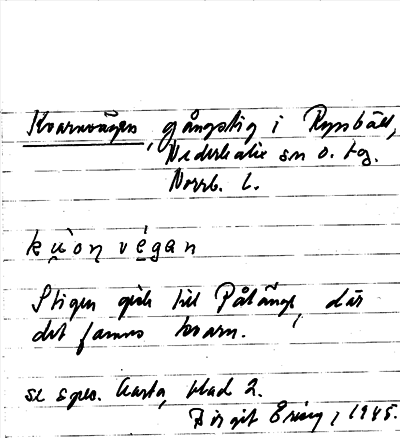 Kvarnvägen, gångstig i Rypsbäll,
Nederkalix sn o. tg.
Norrb. l.
kùo̯ṇ végan
Stigen gick till Påläng, där
det fanns kvarn.
se spec. karta, blad 2.
Birgit 1945.